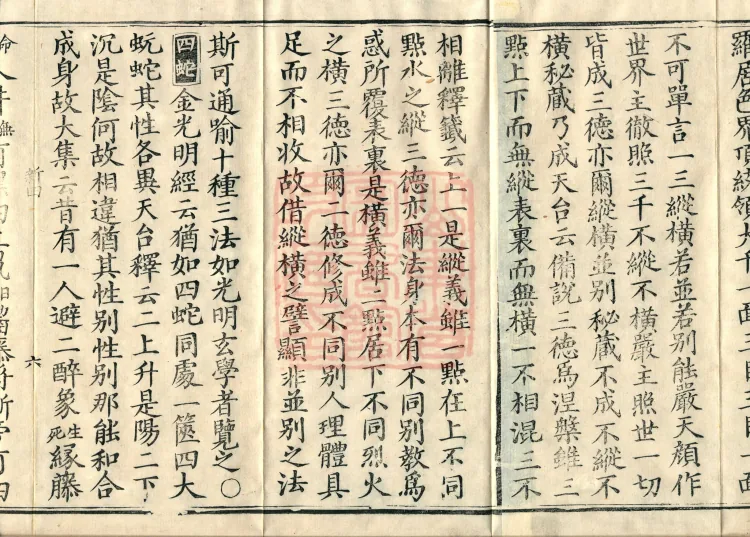 羅居色界頂統領大千一面三目三目一面
不可單言一三縱橫若並若別能嚴天顏作
世界主徹照三千不縱不橫嚴主照世一切
皆成三德亦爾縱橫並別秘藏不成不縱不
橫秘藏乃成天台云備說三德為涅槃雖三
點上下而無縱表裏而無橫一不相混三不
相離釋籤云上一是縱義雖一點在上不同
點水之縱三德亦爾法身本有不同別教為
惑所覆表裏是橫義雖二點居下不同烈火
之橫三德亦爾二德修成不同別人理體具
足而不相收故借縱橫之譬顯非並別之法
斯可通喻十種三法如光明玄學者覽之○
四蛇 金光明經云猶如四蛇同處一篋四大
蚖蛇其性各異天台釋云二上升是陽二下
沉是陰何故相違猶其性別性別那能和合
成身故大集云昔有一人避二醉象生死緣藤
新田
六
命